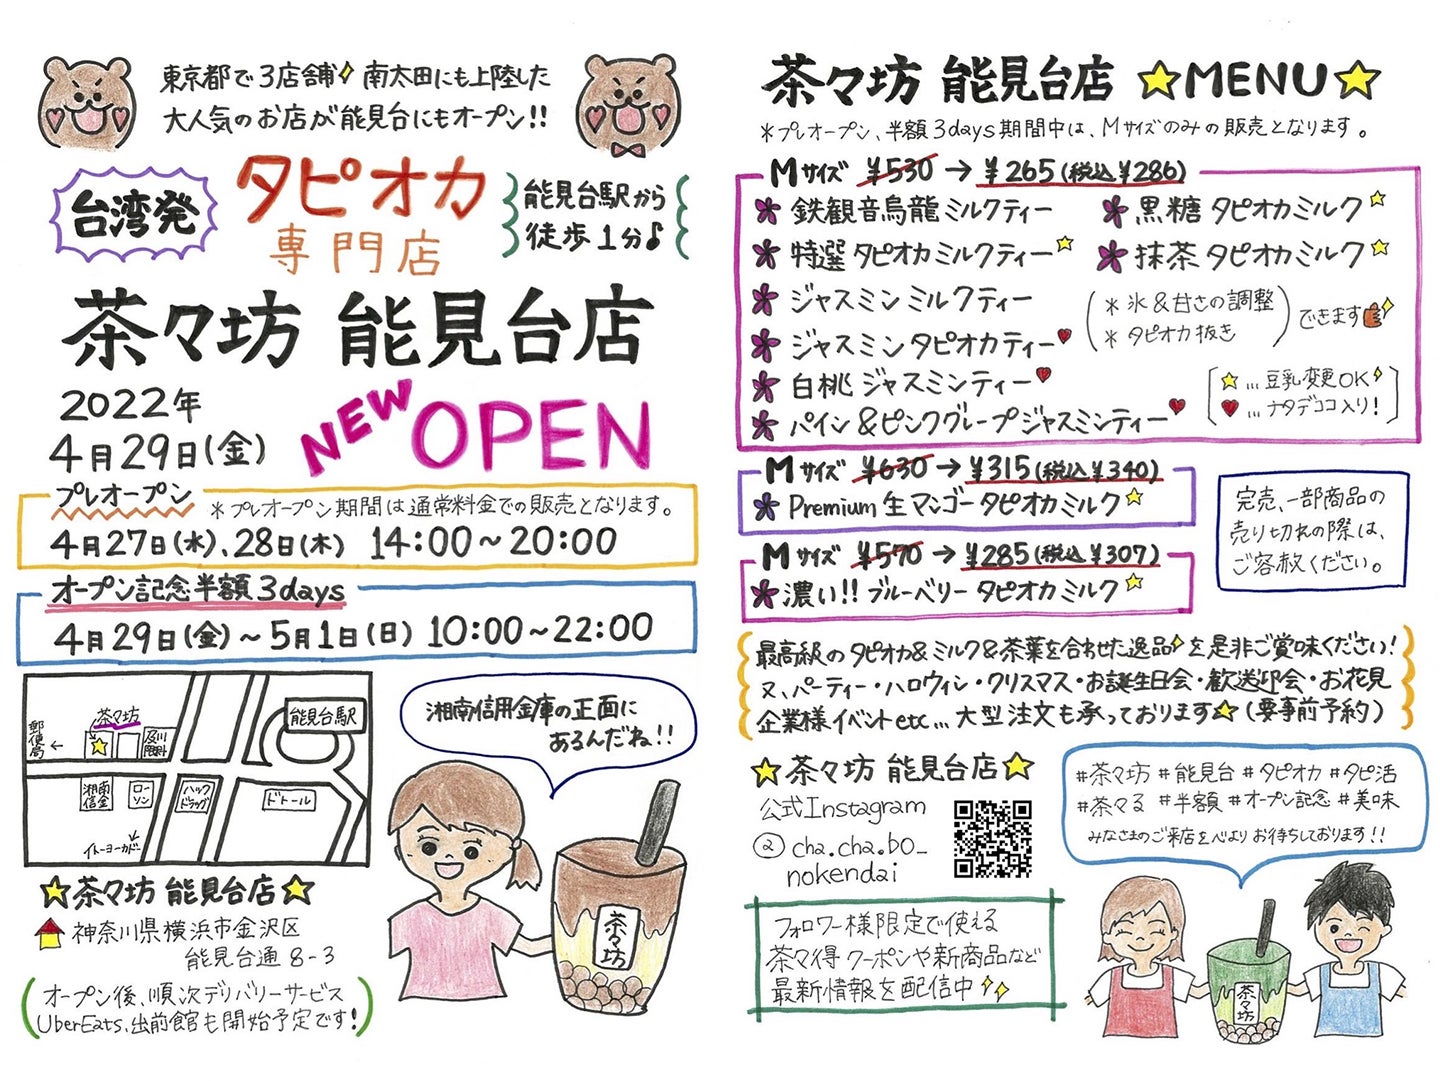 東京都で3店舗 南太田にも上陸した
大人気のお店が能見台にもオープン!!
台湾発
タピオカ
専門店
能見台駅から
徒歩1分♪
茶々坊 能見台店
2022年
4月29日(金)
NEW OPEN
プレオープン
*プレオープン期間は通常料金での販売となります。
4月27日(水)、28日(木) 14:00～20:00
オープン記念半額3days
4月29日(金)～5月1日(日) 10:00～22:00
茶々坊
能見台駅
郵便局
←
及川眼科
湘南信金
ローソン
ハックドラッグ
ドトール
イトーヨーカドー
湘南信用金庫の正面に
あるんだね!!
茶々坊
☆茶々坊 能見台店☆
神奈川県横浜市金沢区
能見台通8-3
(オープン後、順次デリバリーサービス
UberEats、出前館も開始予定です!)
茶々坊 能見台店 ☆MENU☆
*プレオープン、半額3days期間中は、Mサイズのみの販売となります。
Mサイズ ¥530→¥265(税込¥286)
鉄観音烏龍ミルクティー
特選タピオカミルクティー☆
ジャスミンミルクティー
ジャスミンタピオカティー♥
白桃ジャスミンティー♥
パイン&ピンクグレープジャスミンティー♥
黒糖タピオカミルク☆
抹茶タピオカミルク☆
(*氷&甘さの調整
*タピオカ抜き)できます
☆…豆乳変更OK
♥…ナタデココ入り!
Mサイズ ¥630→¥315(税込¥340)
Premium生マンゴータピオカミルク☆
Mサイズ ¥570→¥285(税込¥307)
濃い!!ブルーベリータピオカミルク☆
完売、一部商品の
売り切れの際は、
ご容赦ください。
最高級のタピオカ&ミルク&茶葉を合わせた逸品を是非ご賞味ください!
又、パーティー・ハロウィン・クリスマス・お誕生日会・歓送迎会・お花見
企業様イベントetc…大型注文も承っております☆(要事前予約)
☆茶々坊 能見台店☆
公式Instagram
@cha.cha.bo_
nokendai
フォロワー様限定で使える
茶々得クーポンや新商品など
最新情報を配信中
#茶々坊 #能見台 #タピオカ #タピ活
#茶々る #半額 #オープン記念 #美味
みなさまのご来店を心よりお待ちしております!!
茶々坊